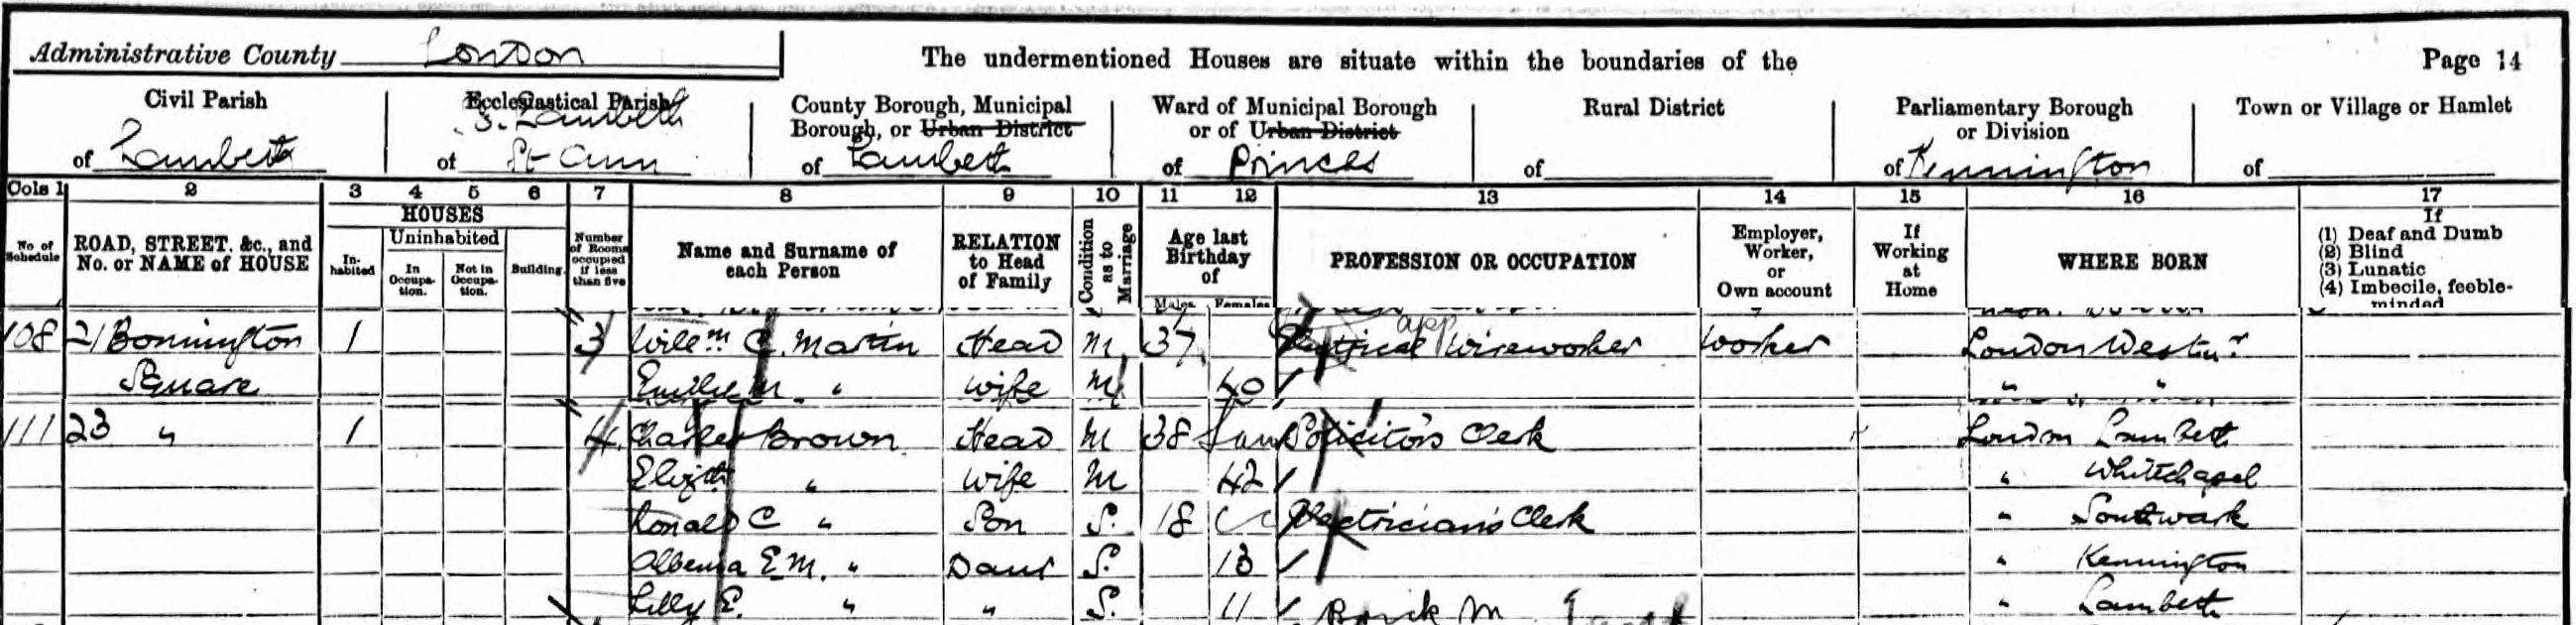 Administrative County London The undermentioned Houses are situate within the boundaries of the Page 14
Civil Parish Ecclesiastical Parish County Borough, Municipal Borough, or Urban District Ward of Municipal Borough or of Urban District Rural District Parliamentary Borough or Division Town or Village or Hamlet
of Lambeth of S. Lambeth St Ann of Lambeth of Princes of of Kennington of
Cols 1 2 3 4 5 6 7 8 9 10 11 12 13 14 15 16 17
No of Schedule ROAD, STREET, &c., and No. or NAME of HOUSE HOUSES In-habited Uninhabited In Occupa-tion. Not in Occupa-tion. Building. Number of Rooms occupied if less than five Name and Surname of each Person RELATION to Head of Family Condition as to Marriage Age last Birthday of Males Females PROFESSION OR OCCUPATION Employer, Worker, or Own account If Working at Home WHERE BORN If (1) Deaf and Dumb (2) Blind (3) Lunatic (4) Imbecile, feeble-minded
108 21 Bonnington 1 3 Willm C. Martin Head M 37 Electrical app Wireworker Worker London Westmr
Square Emilie M. " Wife M 40 " "
111 23 " 1 4 Charles Brown Head M 38 Solicitors Clerk London Lambeth
Elizth " Wife M 42 " Whitechapel
Ronald C " Son S. 18 Electrician's Clerk " Southwark
E M. " Daur S. 13 " Kennington
Lilly E. " " S. 11 " Lambeth